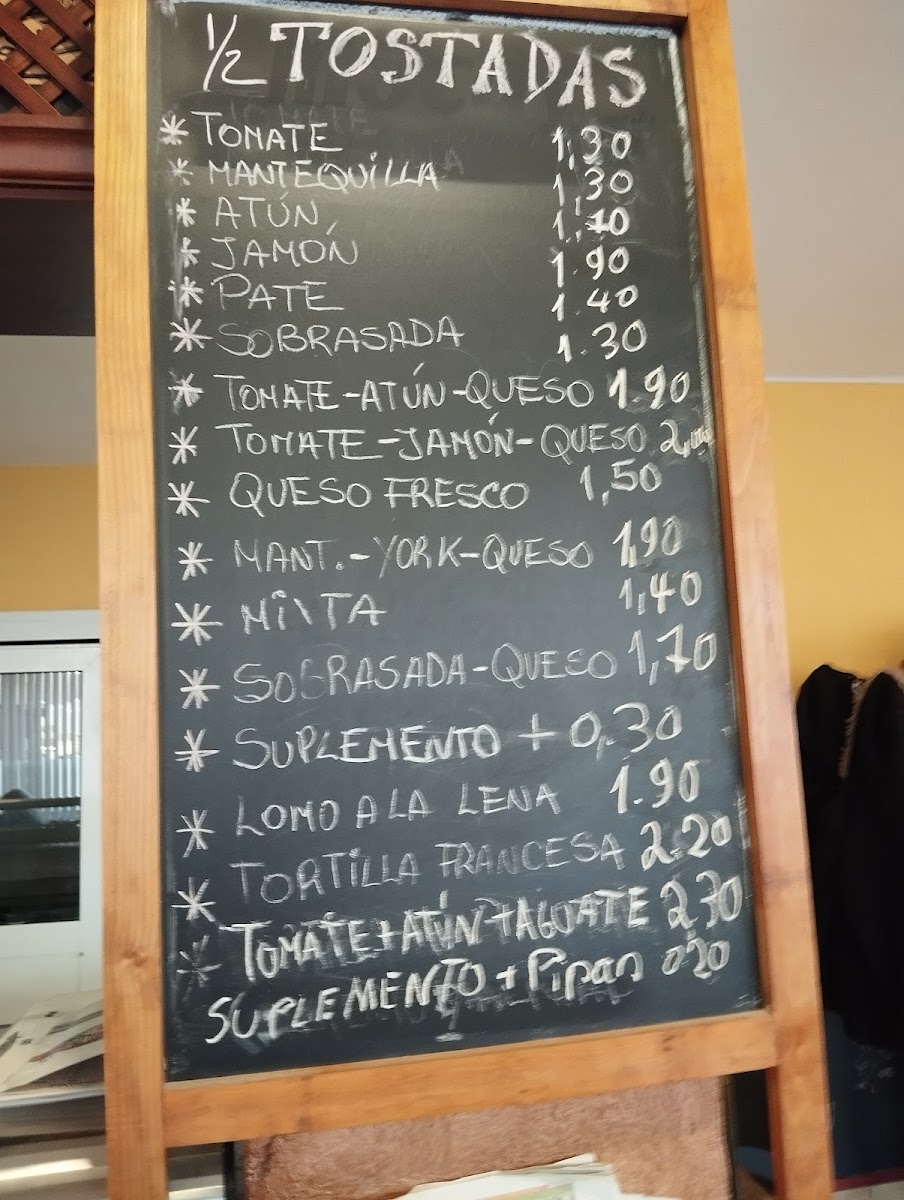 1/2 TOSTADAS
* TOMATE 1,30
* MANTEQUILLA 1,30
* ATÚN
* JAMÓN 1.90
* PATE 1.40
* SOBRASADA 1.30
* TOMATE-ATÚN-QUESO 1.90
* TOMATE-JAMÓN-QUESO
* QUESO FRESCO 1,50
* MANT.-YORK-QUESO 1,90
* MIXTA 1,40
* SOBRASADA-QUESO 1,70
* SUPLEMENTO + 0,30
* LOMO A LA LENA 1.90
* TORTILLA FRANCESA 2.20
* TOMATE+ATÚN+AGUATE 2,30
SUPLEMENTO + Pipan 0'20